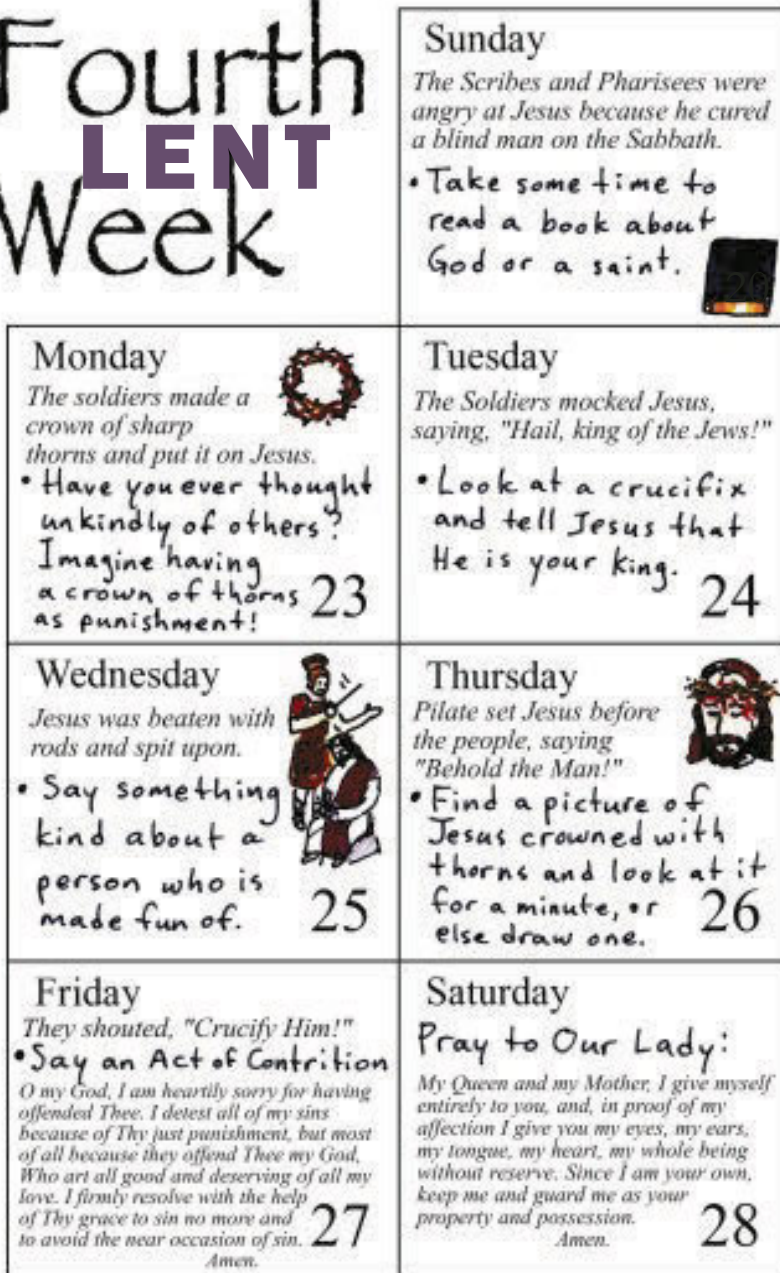 Fourth
LENT
Week
Sunday
The Scribes and Pharisees were
angry at Jesus because he cured
a blind man on the Sabbath.
• Take some time to
read a book about
God or a saint.
Monday
The soldiers made a
crown of sharp
thorns and put it on Jesus.
• Have you ever thought
unkindly of others?
Imagine having
a crown of thorns
as punishment!
23
Tuesday
The Soldiers mocked Jesus,
saying, "Hail, king of the Jews!"
• Look at a crucifix
and tell Jesus that
He is your king.
24
Wednesday
Jesus was beaten with
rods and spit upon.
• Say something
kind about a
person who is
made fun of.
25
Thursday
Pilate set Jesus before
the people, saying
"Behold the Man!"
• Find a picture of
Jesus crowned with
thorns and look at it
for a minute, or
else draw one.
26
Friday
They shouted, "Crucify Him!"
• Say an Act of Contrition
O my God, I am heartily sorry for having
offended Thee. I detest all of my sins
because of Thy just punishment, but most
of all because they offend Thee my God,
Who art all good and deserving of all my
love. I firmly resolve with the help
of Thy grace to sin no more and
to avoid the near occasion of sin.
Amen.
27
Saturday
Pray to Our Lady:
My Queen and my Mother, I give myself
entirely to you, and, in proof of my
affection I give you my eyes, my ears,
my tongue, my heart, my whole being
without reserve. Since I am your own,
keep me and guard me as your
property and possession.
Amen.
28